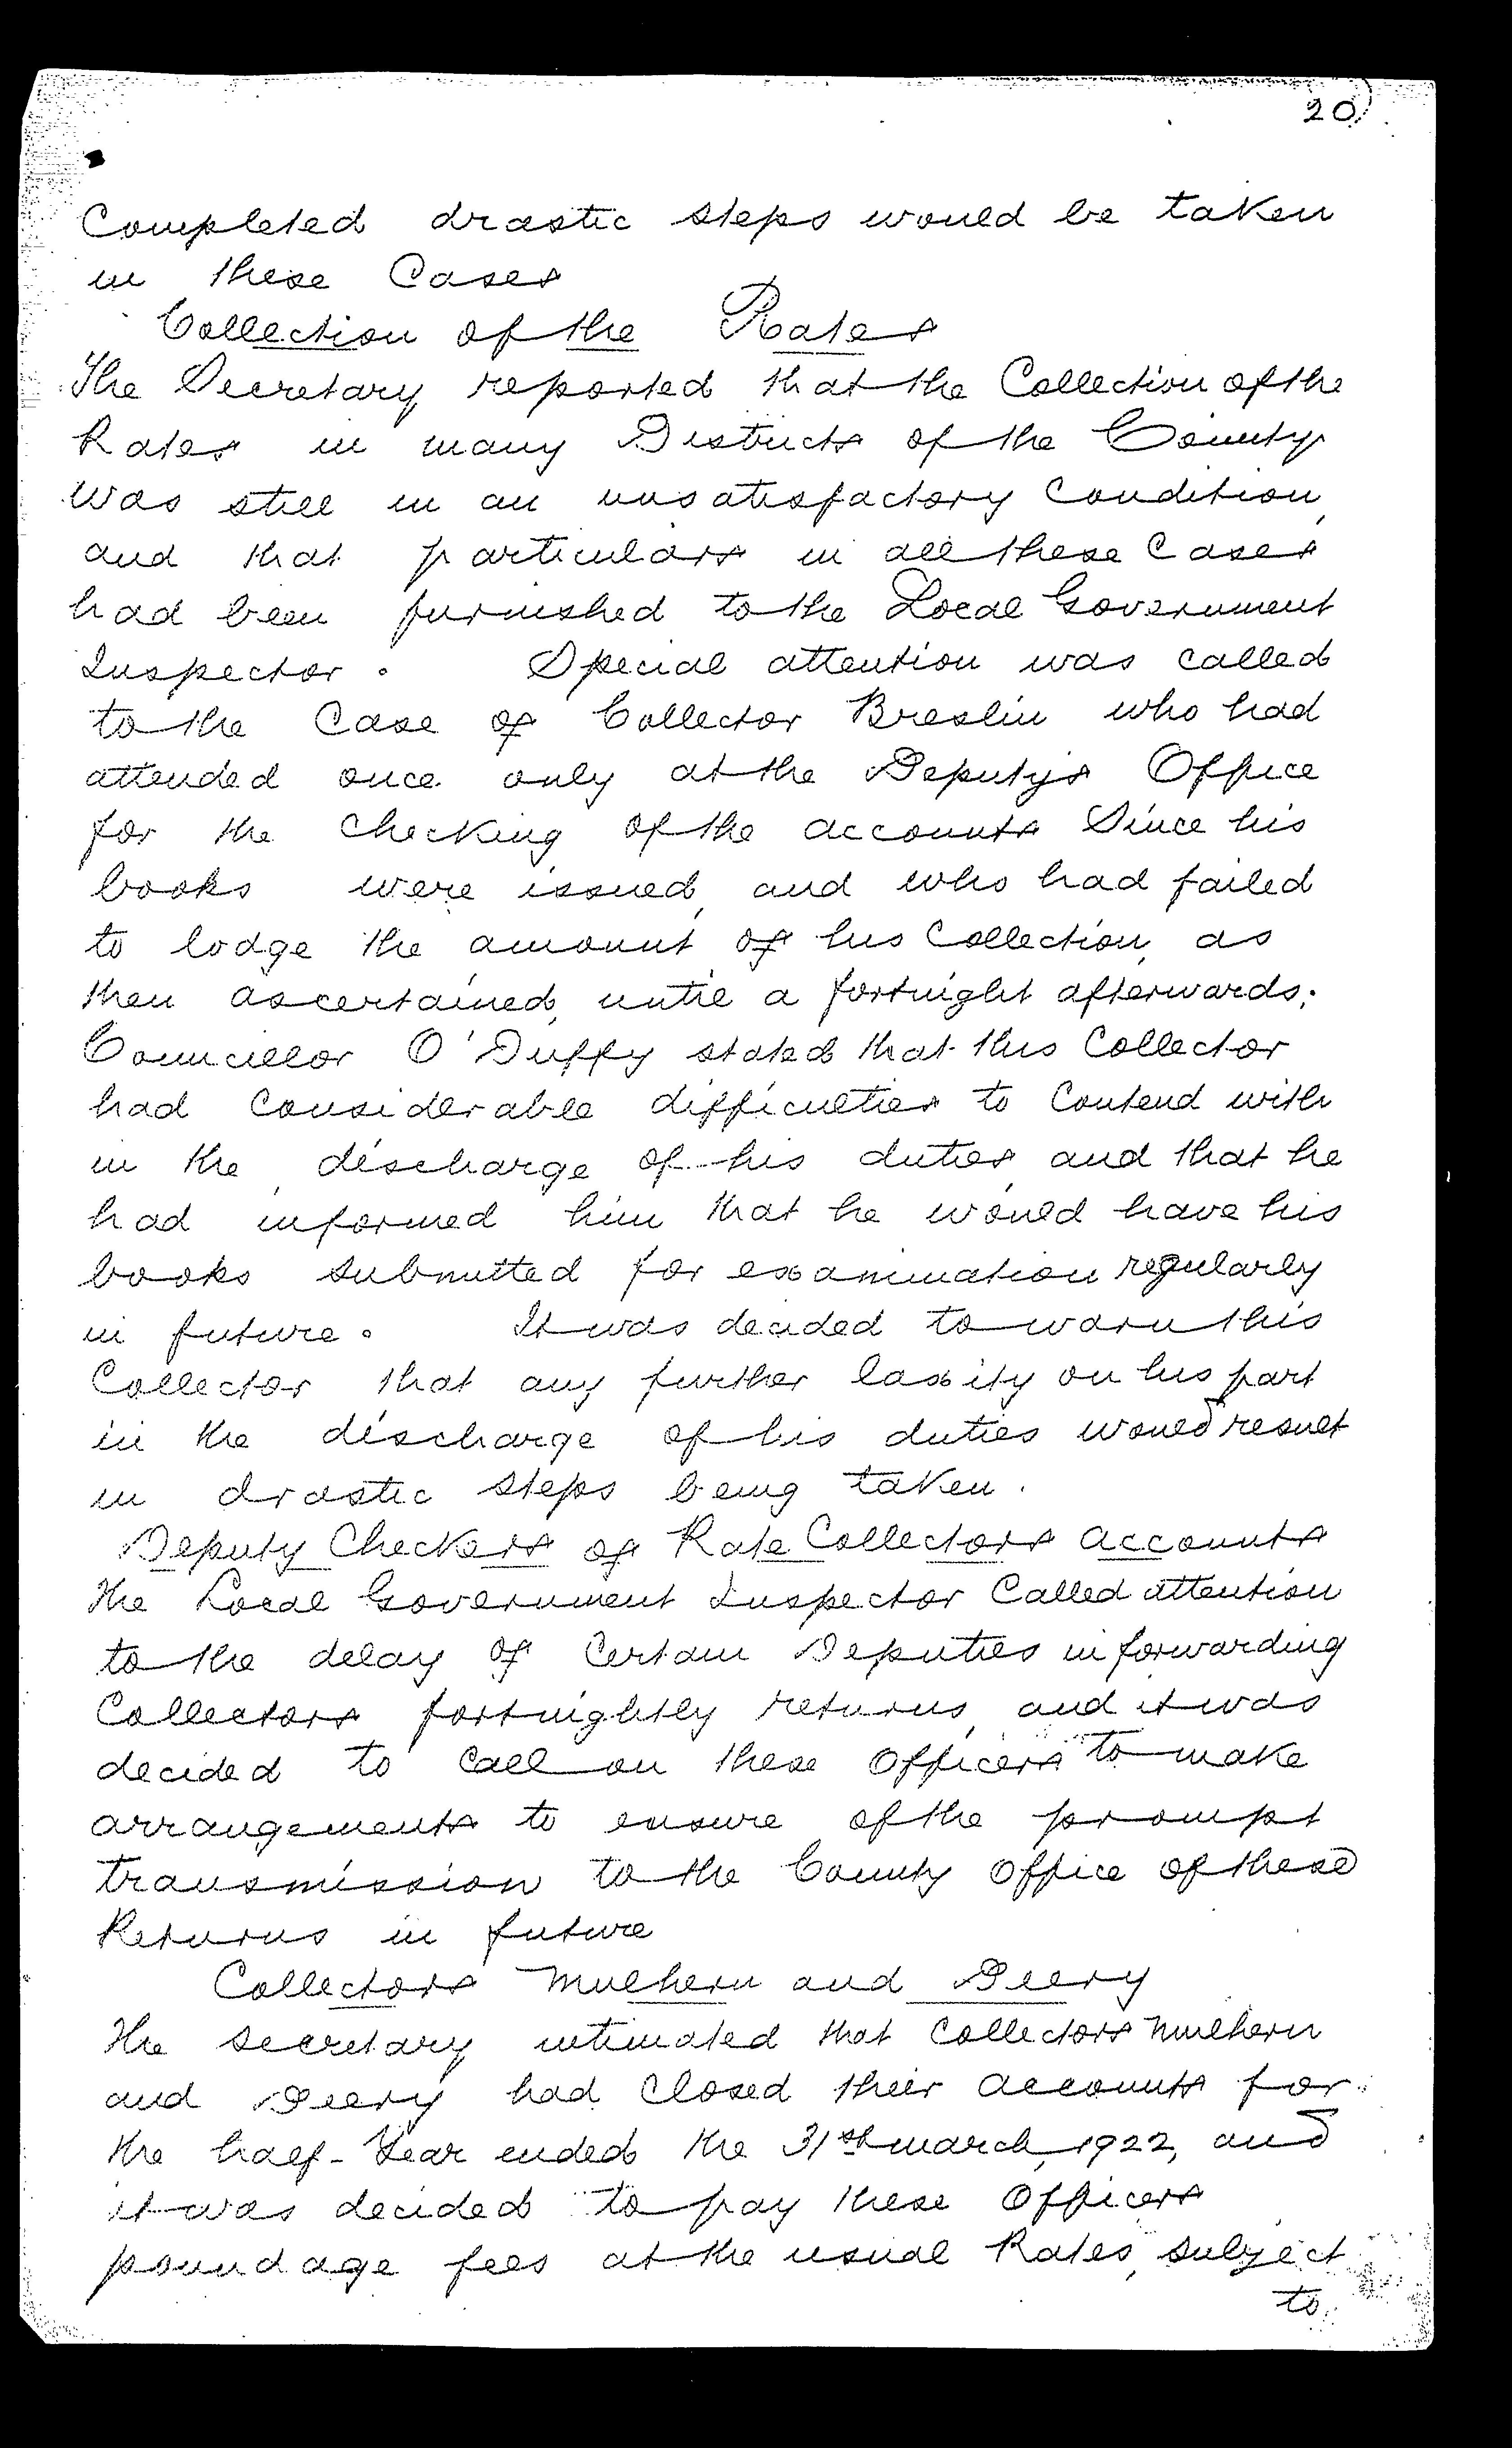 20)
Completed drastic steps would be taken
in these Cases
Collection of the Rates
The Secretary reported that the Collection of the
Rates in many Districts of the County
was still in an unsatisfactory Condition,
and that particulars in all these Cases
had been furnished to the Local Government
Inspector. Special attention was called
to the Case of Collector Breslin who had
attended once only at the Deputys Office
for the Checking of the accounts Since his
books were issued, and who had failed
to lodge the amount of his Collection, as
then ascertained, until a fortnight afterwards.
Councillor O'Duffy stated that this Collector
had Considerable difficulties to Contend with
in the discharge of his duties, and that he
had informed him that he would have his
books submitted for examination regularly
in future. It was decided to warn this
Collector that any further laxity on his part
in the discharge of his duties would result
in drastic steps being taken.
Deputy Checkers of Rate Collectors accounts
The Local Government Inspector Called attention
to the delay of Certain Deputies in forwarding
Collectors fortnightly returns, and it was
decided to Call on these Officers to make
arrangements to ensure of the prompt
transmission to the County Office of these
Returns in future
Collectors Mulhern and Deery
The secretary intimated that Collectors Mulhern
and Deery had Closed their accounts for
the half-Year ended the 31st March, 1922, and
it was decided to pay these Officers
poundage fees at the usual Rates, subject
to